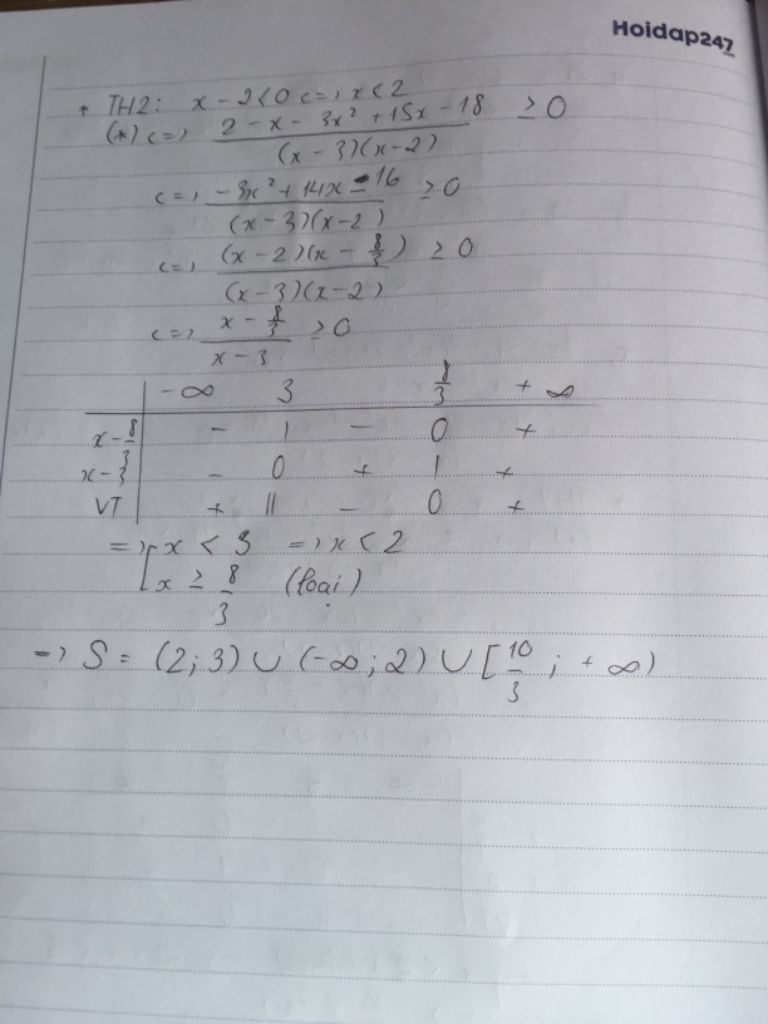 Hoidap247
* TH2: x - 2 < 0 <=> x < 2
(*) <=> (2 - x - 3x² + 15x - 18) / ((x - 3)(x - 2)) ≥ 0
<=> (-3x² + 14x - 16) / ((x - 3)(x - 2)) ≥ 0
<=> ((x - 2)(x - 8/3)) / ((x - 3)(x - 2)) ≥ 0
<=> (x - 8/3) / (x - 3) ≥ 0
-∞ 3 8/3 +∞
x - 8/3 - | - 0 +
x - 3 - 0 + | +
VT + || - 0 +
=> [ x < 3 => x < 2
x ≥ 8/3 (loại)
=> S = (2; 3) ∪ (-∞; 2) ∪ [10/3; +∞)